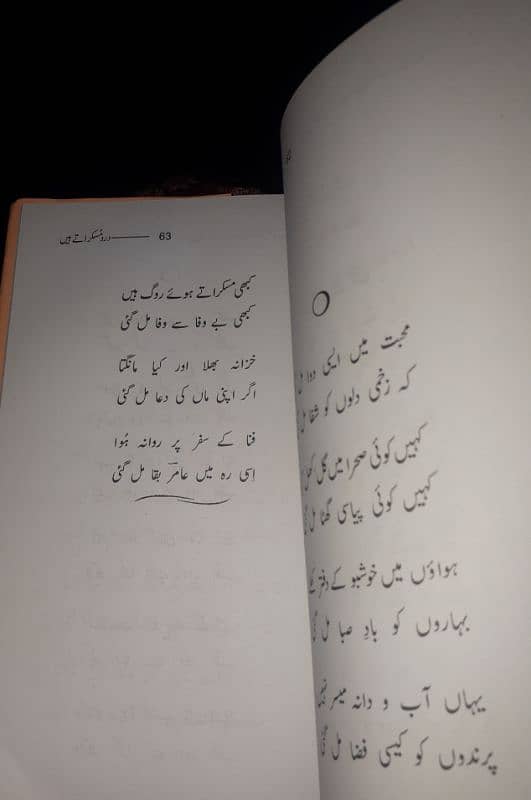 محبت میں ایسی دوا
کہ زخمی دلوں کو شفا
کہیں کوئی صحرا میں گل
کہیں کوئی پیاسی گھٹا مل
ہواؤں میں خوشبو کے دفتر
بہاروں کو بادِ صبا مل
یہاں آب و دانہ میسر
پرندوں کو کیسی فضا مل
درد مسکراتے ہیں ——— 63
کبھی مسکراتے ہوئے روگ ہیں
کبھی بے وفا سے وفا مل گئی
خزانہ بھلا اور کیا مانگتا
اگر اپنی ماں کی دعا مل گئی
فنا کے سفر پر روانہ ہُوا
اِسی رہ میں عامرؔ بقا مل گئی